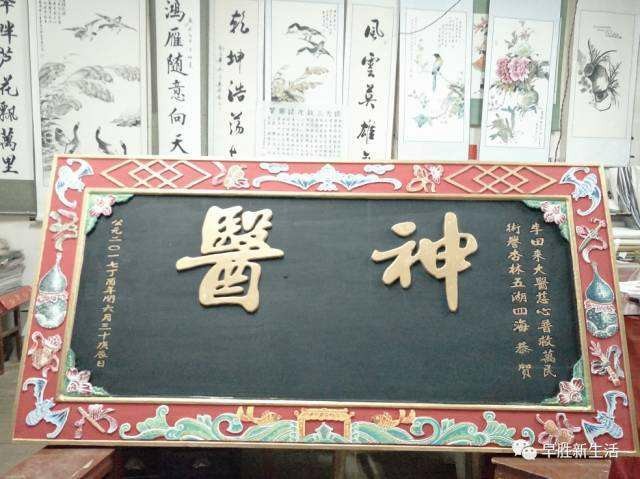 畔芦花飄萬里
鴻雁随意向天
乾坤浩荡
風雲英雄
李田来大醫慈心普救萬民
術譽杏林五湖四海 恭賀
神醫
公元二〇一七丁酉年閏六月三十庚辰日
早胜新生活